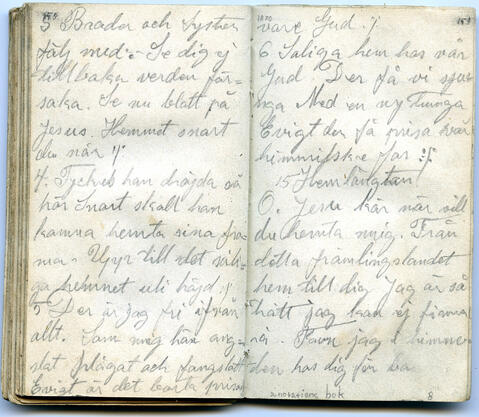 3 Broder och Syster
följ med :- Se dig ej
tillbaka verden för=
saka. Se nu blott på
Jesus. Hemmet snart
du når :/:
4. Tyckes han dröjda så
här Snart skall han
komma hemta sina fro
ma - Upp till det sali=
ga hemmet uti höjd :/:
5 Der är jag fri ifrån
allt. Som mig här ang=
slat plågat och fångslat
Evigt är det borta
vare Gud :/:
6 Saliga hem hos vår
Gud. Der få vi sjun
nga Med en ny tunga
Evigt der få prisa vår
himmelske far :/:
15 Hemlängtan
O. Jesu kär när vill
du hemta mig. Från
detta främlingslandet
hem till dig Jag är så
trött jag kan ej finna
ro. Favn jag i himme
len hos dig får bo
bok 8